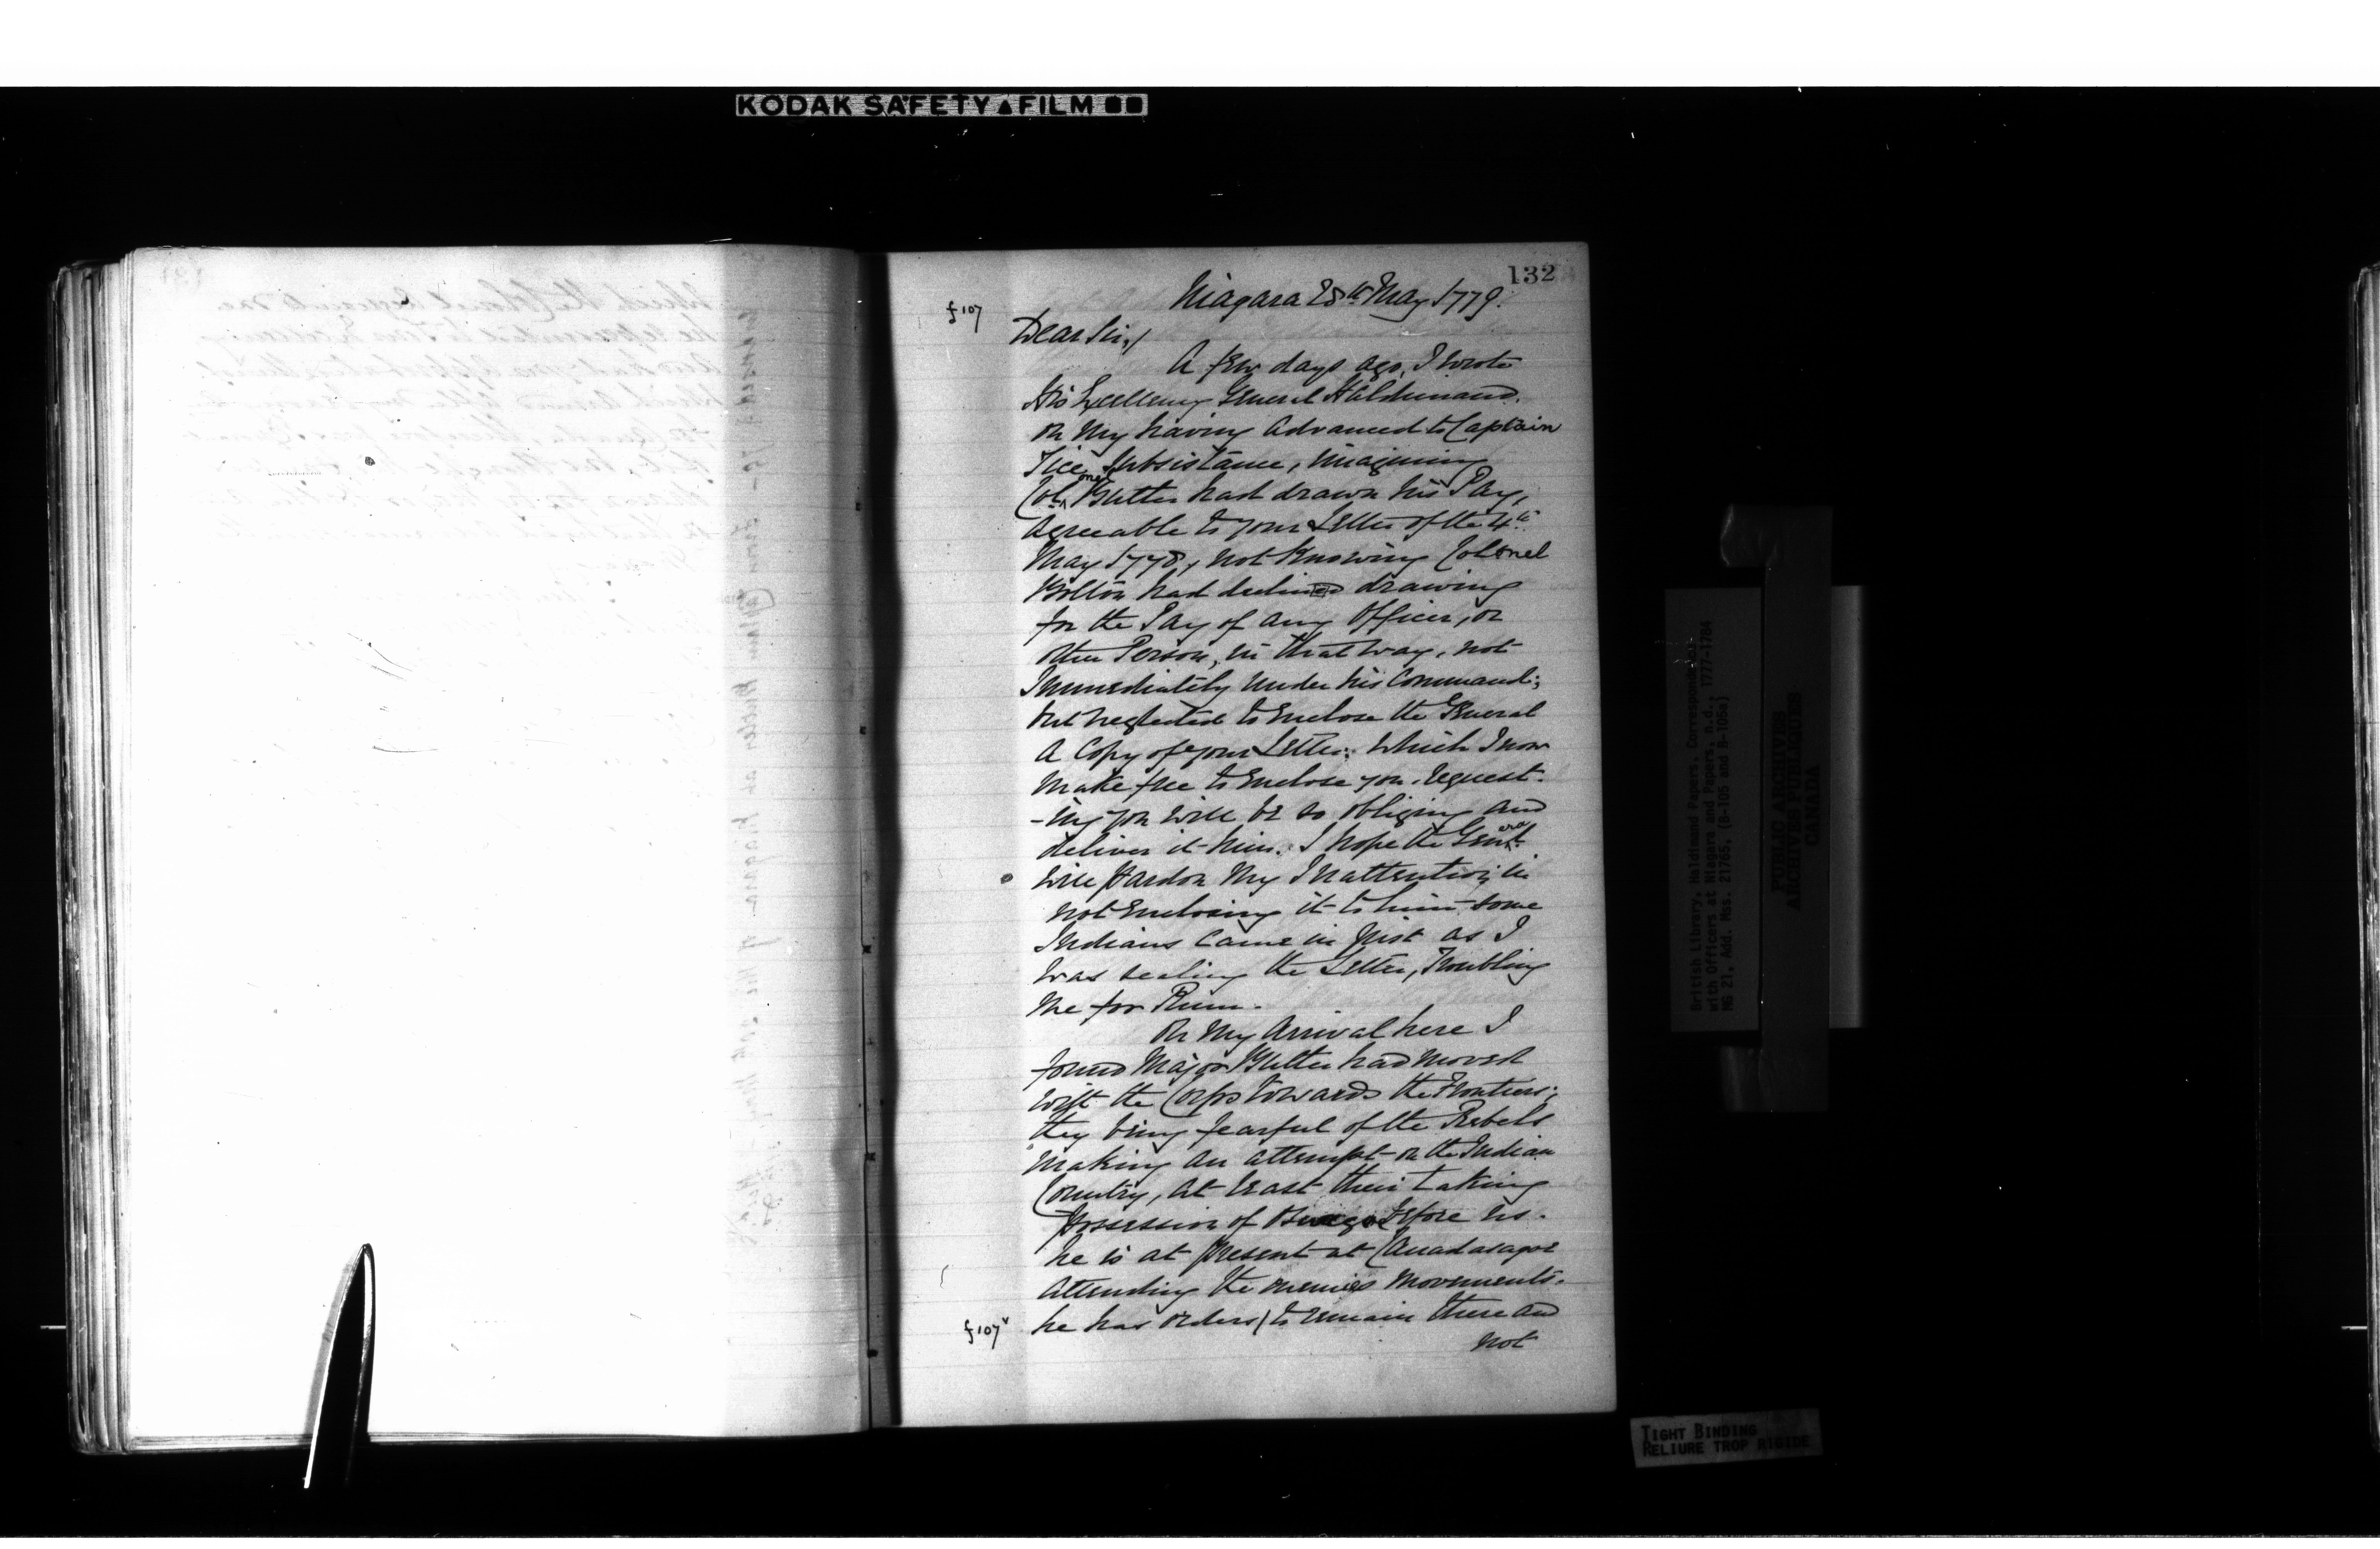 KODAK SAFETY FILM
132
Niagara 28th May 1779.
f107
Dear Sir,/
A few days ago, I wrote
His Excellency General Haldimand,
on my having Advanced to Captain
Tice Subsistance, imagining
Colonel Butler had drawn his Pay,
Agreeable to your Letter of the 4th
May 1778, not knowing Colonel
Bolton had declined drawing
for the Pay of any Officer, or
other Person, in that way, not
Immediately under his Command;
but neglected to Enclose the General
a Copy of your Letter; which I now
make free to Enclose you. request-
-ing you will be so obliging and
deliver it him. I hope the General
will Pardon my Inattention in
not Enclosing it to him some
Indians came in just as I
was sealing the Letter, Troubling
me for Rum.
On my Arrival here I
found Major Butler had moved
with the Corps towards the Frontiers;
they being fearful of the Rebels
making an attempt on the Indian
Country, at least their taking
possession of Oswego before us.
he is at present at Canadasagoe
attending the enemies movements.
f107v he has orders / to remain there and
not
British Library, Haldimand Papers, Correspondence
with Officers at Niagara and Papers, n.d., 1777-1784
MG 21, Add. Mss. 21765, (B-105 and B-106a)
PUBLIC ARCHIVES
ARCHIVES PUBLIQUES
CANADA
TIGHT BINDING
RELIURE TROP RIGIDE